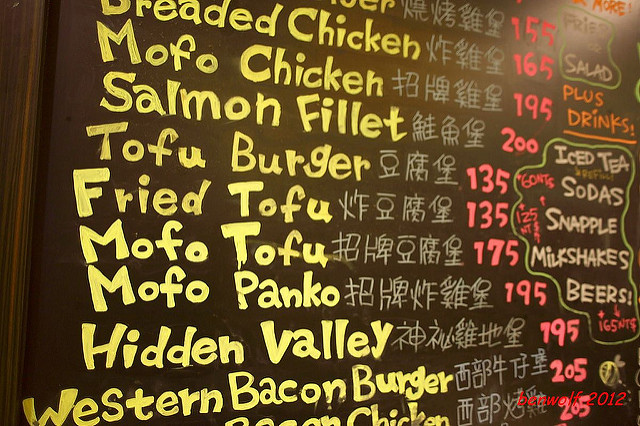 燒烤雞堡 155
Breaded Chicken 炸雞堡 165
Mofo Chicken 招牌雞堡 195
Salmon Fillet 鮭魚堡 200
Tofu Burger 豆腐堡 135
Fried Tofu 炸豆腐堡 135
Mofo Tofu 招牌豆腐堡 175
Mofo Panko 招牌炸雞堡 195
Hidden Valley 神祕雞地堡 195
Western Bacon Burger 西部牛仔堡 205
Bacon Chicken 西部烤雞 205
& MORE!
FRIES
SALAD
PLUS
DRINKS!
ICED TEA
SODAS
60NT$
SNAPPLE
MILKSHAKES
125
BEERS!
165NT$
benwolf-2012